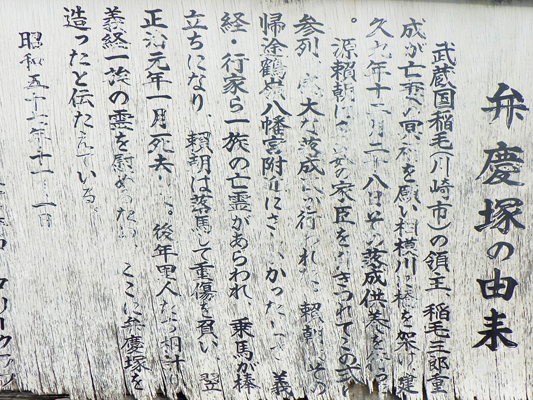 弁慶塚の由来
武蔵国稲毛(川崎市)の領主、稲毛三郎重
成が亡妻の冥福を願い相模川に橋を架け、建
久九年十二月二十八日その落成供養を行った
。源頼朝は多数の家臣をひきつれてこの式に
参列、盛大な落成式が行われた。頼朝がその
帰途鶴嶺八幡宮附近にさしかかったとき、義
経・行家ら一族の亡霊があらわれ、乗馬が棒
立ちになり、頼朝は落馬して重傷を負い、翌
正治元年一月死去した。後年里人たち相計り
義経一族の霊を慰めるため、ここに弁慶塚を
造ったと伝えている。
昭和五十六年十一月一日